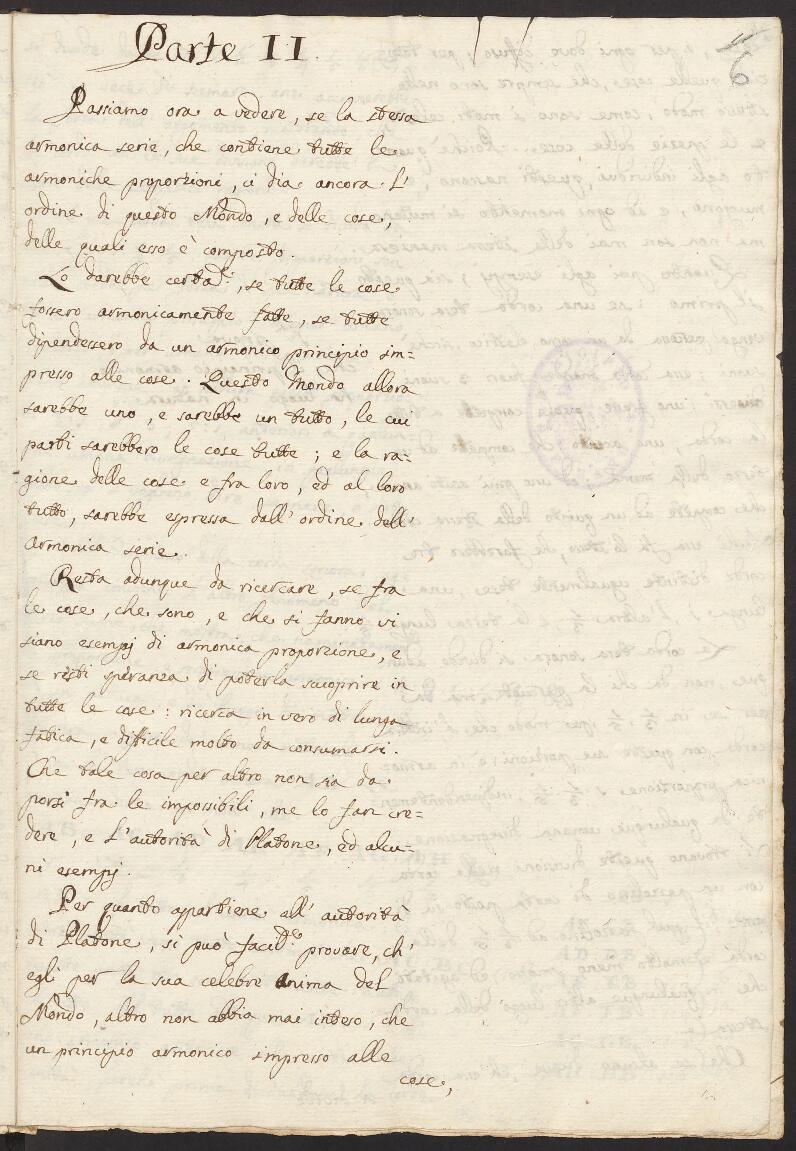 Parte II.
6
Passiamo ora a vedere, se la stessa
armonica serie, che contiene tutte le
armoniche proporzioni, ci dia ancora l'
ordine di questo Mondo, e delle cose,
delle quali esso è composto.
Lo darebbe certam.e, se tutte le cose
fossero armonicamente fatte, se tutte
dipendessero da un armonico principio im-
presso alle cose. Questo Mondo allora
sarebbe uno, e sarebbe un tutto, le cui
parti sarebbero le cose tutte; e la ra-
gione delle cose e fra loro, ed al loro
tutto, sarebbe espressa dall' ordine dell'
armonica serie.
Resta adunque da ricercare, se fra
le cose, che sono, e che si fanno vi
siano esempj di armonica proporzione, e
se resti speranza di poterla scuoprire in
tutte le cose: ricerca in vero di lunga
fatica, e difficile molto da consumarsi.
Che tale cosa per altro non sia da
porsi fra le impossibili, me lo fan cre-
dere, e l'autorità di Platone, ed alcu-
ni esempj.
Per quanto appartiene all' autorità
di Platone, si può facilm.e provare, ch'
egli per la sua celebre anima del
Mondo, altro non abbia mai inteso, che
un principio armonico impresso alle
cose,